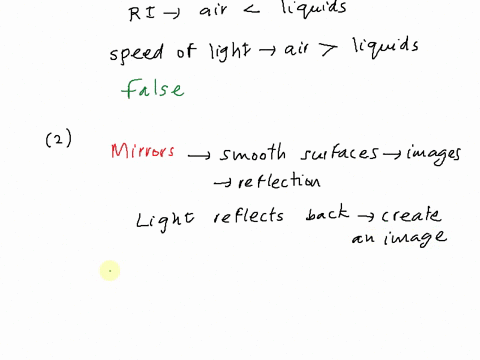 RI → air < liquids
speed of light → air > liquids
False
(2) Mirrors → smooth surfaces → images
→ reflection
Light reflects back → create
an image